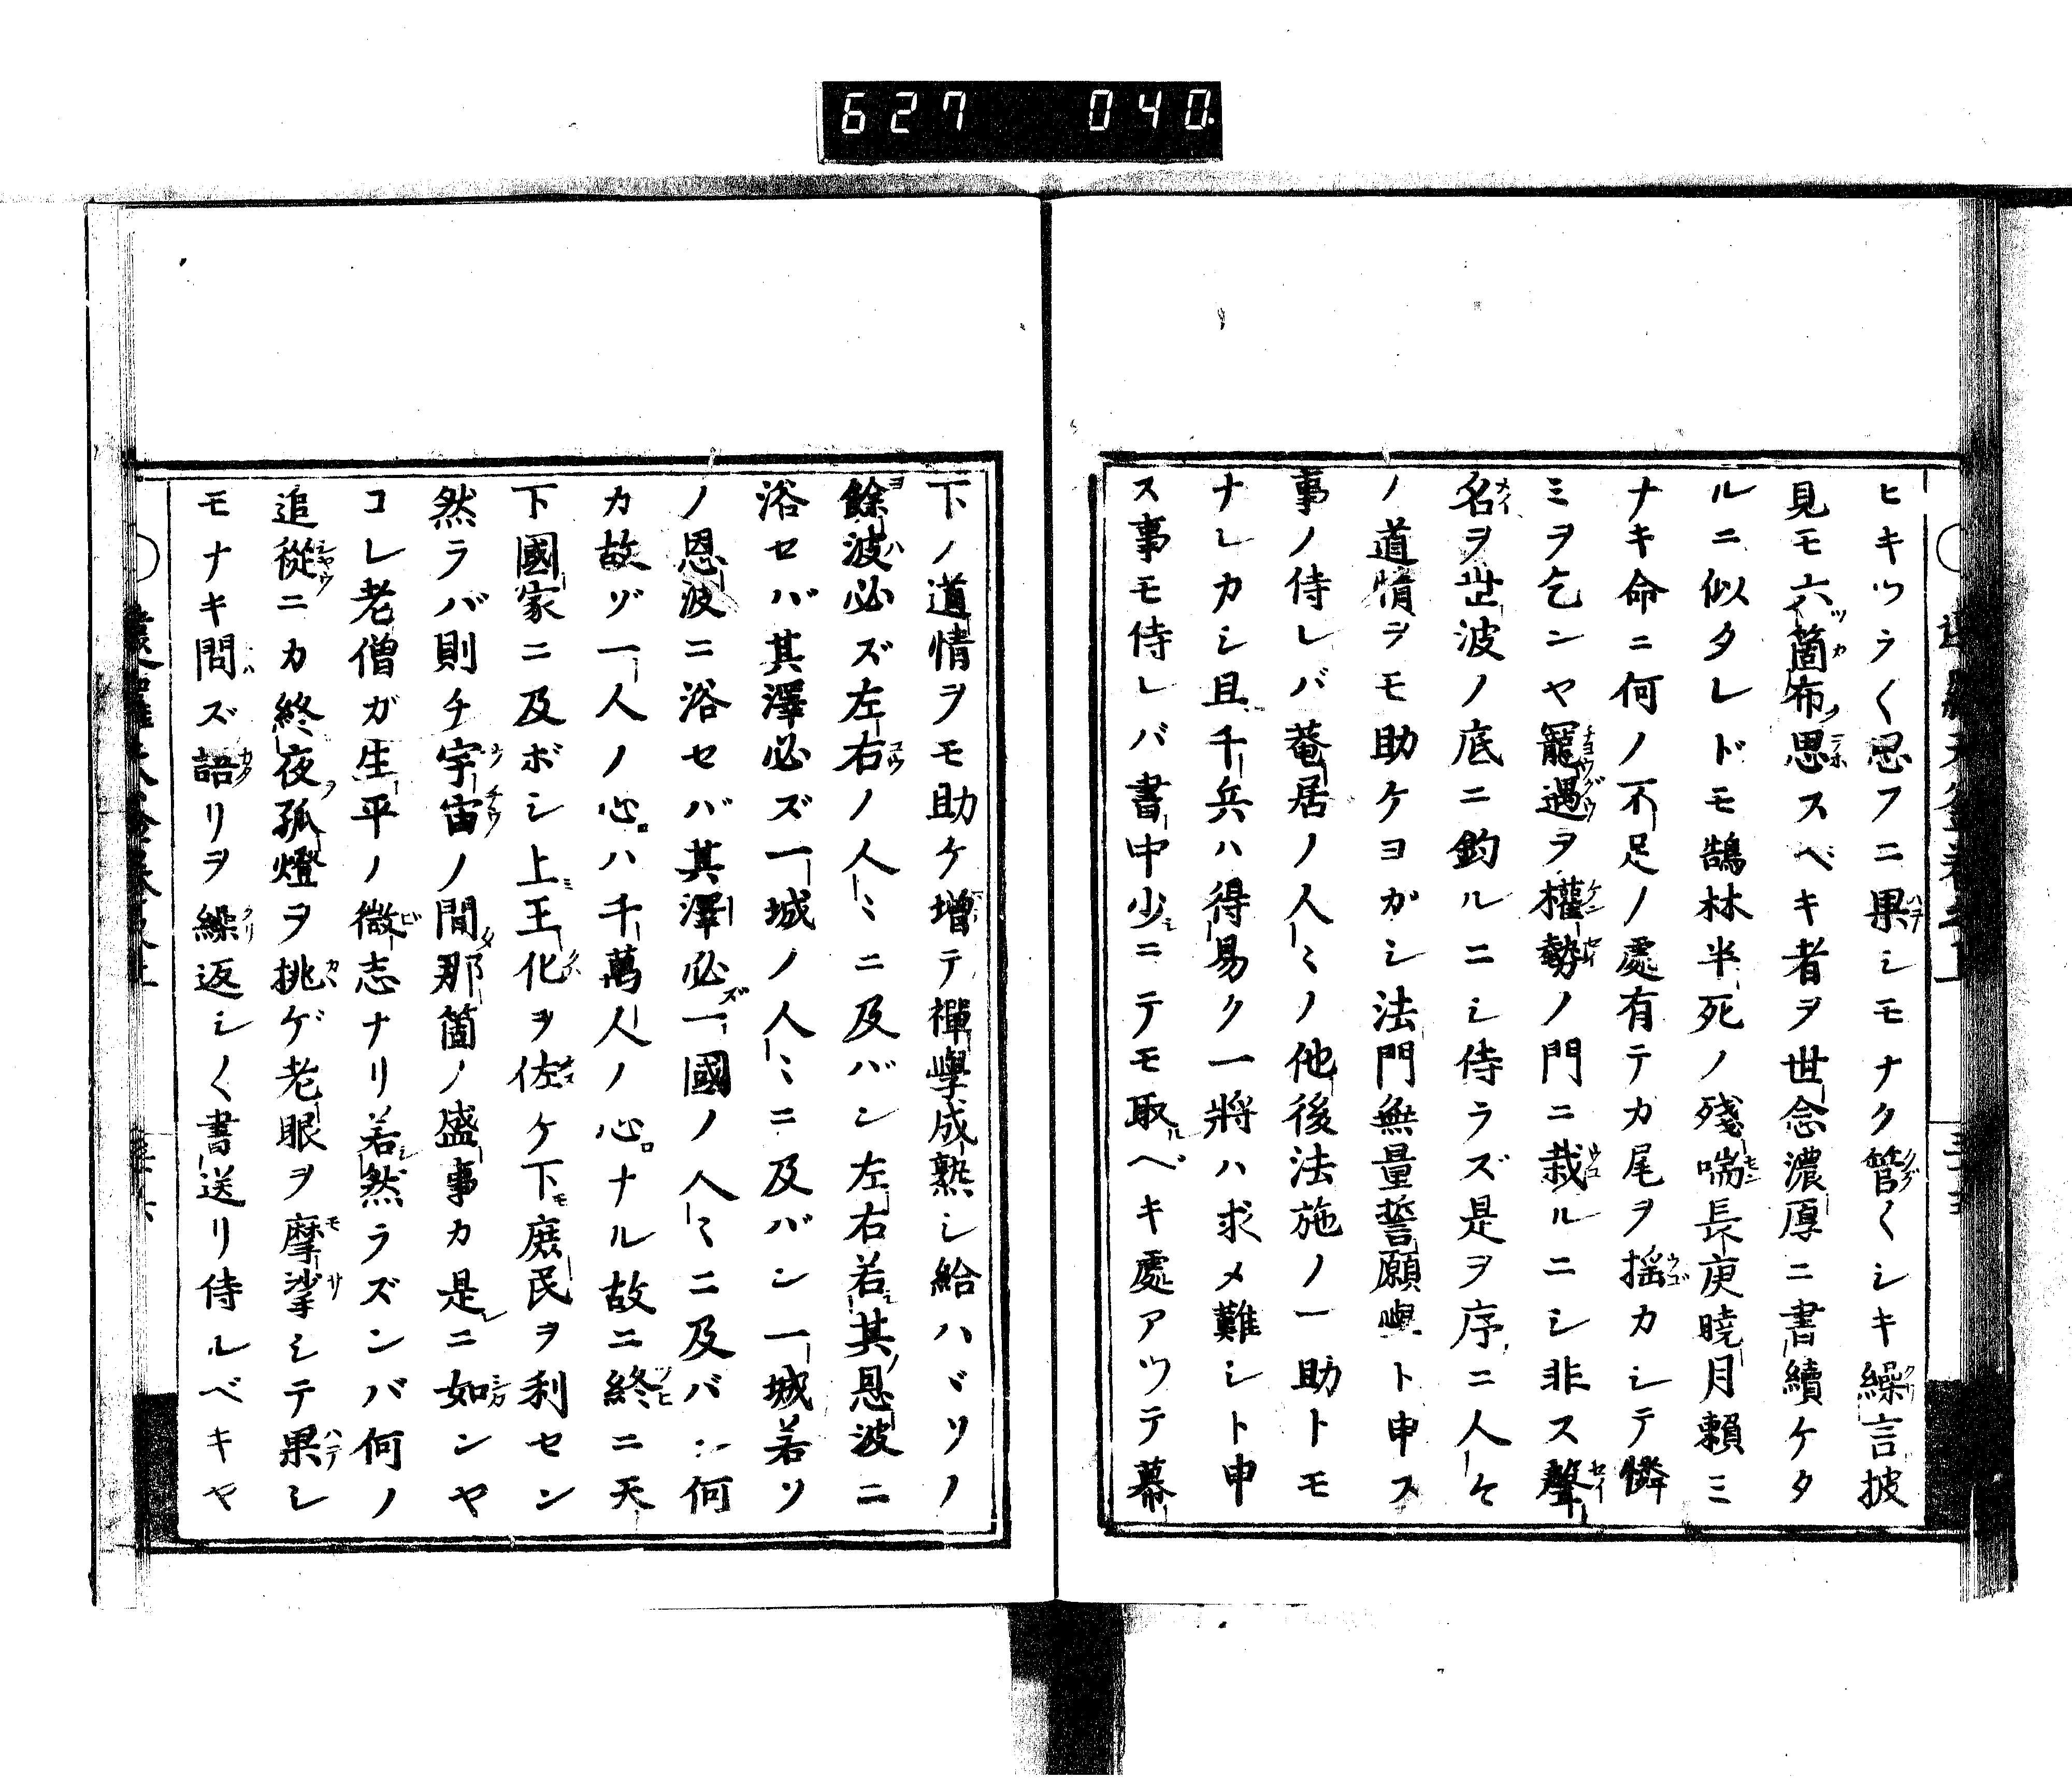 627 040
ヒキツラ〱思フニ果シモナク管〱シキ繰言披
見モ六箇布思スベキ者ヲ世念濃厚ニ書續ケタ
ルニ似タレドモ鵠林半死ノ殘喘長庚曉月頼ミ
ナキ命ニ何ノ不足ノ處有テカ尾ヲ揺カシテ憐
ミヲ乞ンヤ寵遇ヲ權勢ノ門ニ栽ルニシ非ス聲
名ヲ世波ノ底ニ釣ルニシ侍ラズ是ヲ序ニ人々
ノ道情ヲモ助ケヨガシ法門無量誓願學ト申ス
事ノ侍レバ菴居ノ人〻ノ他後法施ノ一助トモ
ナレカシ且千兵ハ得易ク一將ハ求メ難シト申
ス事モ侍レバ書中少ニテモ取ベキ處アツテ幕
下ノ道情ヲモ助ケ增テ禪學成熟シ給ハヾソノ
餘波必ズ左右ノ人〻ニ及バン左右若其恩波ニ
浴セバ其澤必ズ一城ノ人〻ニ及バン一城若ソ
ノ恩波ニ浴セバ其澤必ズ一國ノ人〻ニ及バン何
カ故ゾ一人ノ心ハ千萬人ノ心ナル故ニ終ニ天
下國家ニ及ボシ上王化ヲ佐ケ下庶民ヲ利セン
然ラバ則チ宇宙ノ間那箇ノ盛事カ是ニ如ンヤ
コレ老僧ガ生平ノ微志ナリ若然ラズンバ何ノ
追從ニカ終夜孤燈ヲ挑ゲ老眼ヲ摩挲シテ果シ
モナキ問ズ語リヲ繰返シ〱書送リ侍ルベキヤ